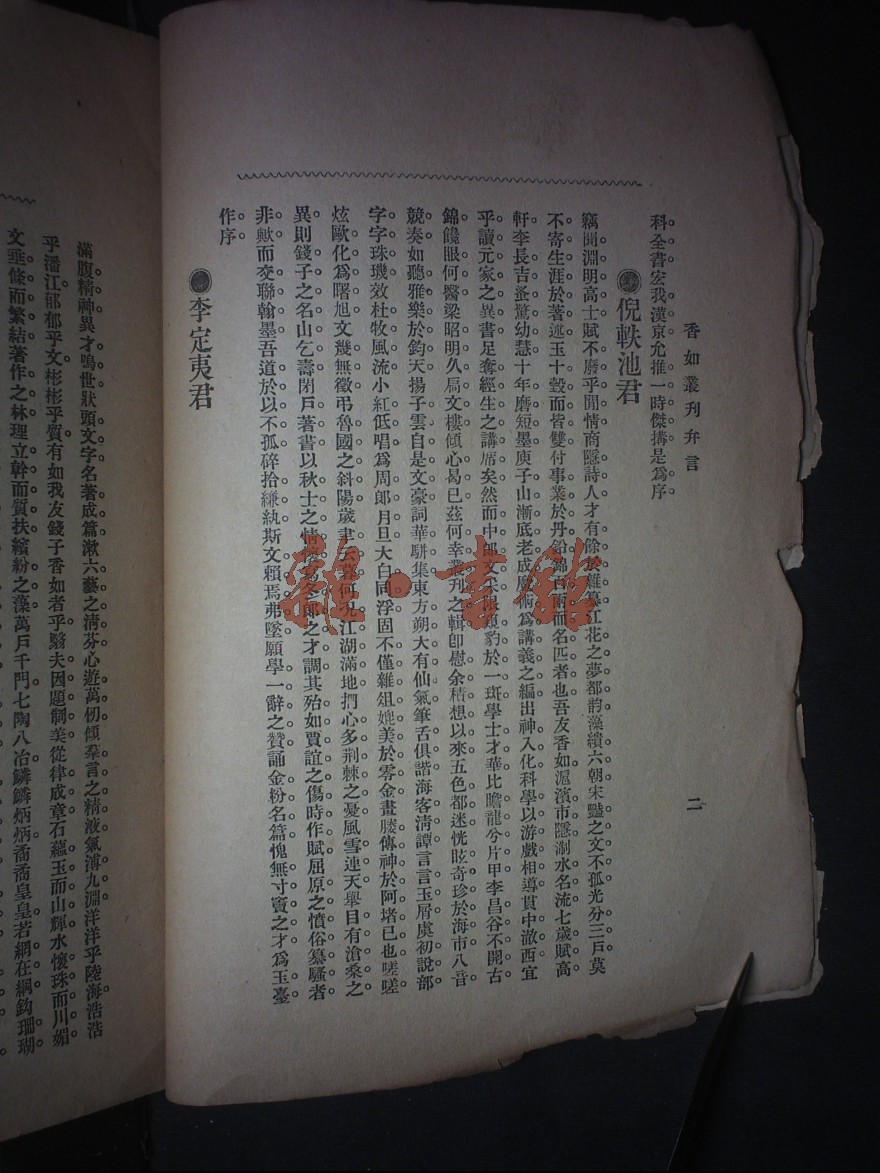 香如叢刊弁言
二
科全書宏我漢京允推一時傑搆是爲序
倪軼池君
竊聞淵明高士賦不廢乎閒情商隱詩人才有餘於雜纂江花之夢都韵藻繢六朝宋豔之文不孤光分三戶莫
不寄生涯於著述玉十瑴而皆雙付事業於丹鉛錦百兩而名匹者也吾友香如滬濱市隱淛水名流七歲賦高
軒李長吉蚤驚幼慧十年磨短墨庾子山漸底老成魔術爲講義之編出神入化科學以游戲相導貫中澈西宜
乎讀元家之異書足奪經生之講席矣然而中郎文采限窺豹於一斑學士才華比瞻龍兮片甲李昌谷不開古
錦饞眼何醫梁昭明久扃文樓傾心曷已茲何幸叢刊之輯卽慰余積想以來五色都迷恍眩奇珍於海市八音
競奏如聽雅樂於鈞天揚子雲自是文豪詞華駢集東方朔大有仙氣筆舌俱諧海客淸譚言言玉屑虞初說部
字字珠璣效杜牧風流小紅低唱爲周郎月旦大白同浮固不僅雜俎媲美於零金畫媵傳神於阿堵已也嗟嗟
炫歐化爲曙旭文幾無徵弔魯國之斜陽歲聿云暮何况江湖滿地捫心多荆棘之憂風雪連天舉目有滄桑之
異則錢子之名山乞壽閉戶著書以秋士之情懷寫冬郎之才調其殆如賈誼之傷時作賦屈原之憤俗纂騷者
非歟而交聯翰墨吾道於以不孤碎拾縑紈斯文賴焉弗墜願學一辭之贊誦金粉名篇愧無寸寶之才爲玉臺
作序
李定夷君
滿腹精神異才鳴世狀頭文字名著成篇漱六藝之淸芬心遊萬仞傾羣言之精液氣溥九淵洋洋乎陸海浩浩
乎潘江郁郁乎文彬彬乎質有如我友錢子香如者乎翳夫因題制美從律成章石蘊玉而山輝水懷珠而川媚
文垂條而繁結著作之林理立幹而質扶繽紛之藻萬戶千門七陶八冶鱗鱗炳炳矞矞皇皇若網在綱鈎珊瑚
雜·書館